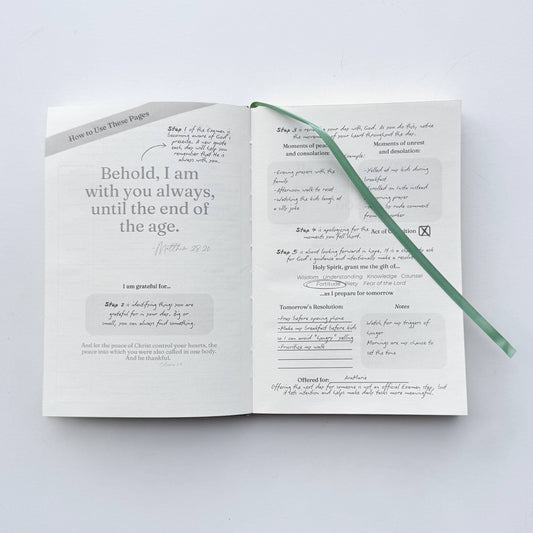 How to Use These Pages
Step 1 of the Examen is
becoming aware of God's
presence. A new quote
each day will help you
remember that He is
always with you.
Behold, I am
with you always,
until the end of
the age.
Matthew 28:20
I am grateful for...
Step 2 is identifying things you are
grateful for in your day. Big or
small, you can always find something.
And let the peace of Christ control your hearts, the
peace into which you were also called in one body.
And be thankful.
Step 3 is reviewing your day with God. As you do this, notice
the movements of your heart throughout the day.
Moments of peace
and consolation:
Example:
-Evening prayer with the
family
-Afternoon walk to reset
-Watching the kids laugh at
a silly joke
Moments of unrest
and desolation:
-Yelled at my kids during
breakfast
instead
morning prayer
to rude comment
from
Step 4 is apologizing for the
moments you fell short.
Act of Contrition
Step 5 is about looking forward in hope. It is a chance to ask
for God's guidance and intentionally make a
Holy Spirit, grant me the gift of...
Wisdom Understanding Knowledge Counsel
Fortitude Piety Fear of the Lord
...as I prepare for tomorrow
Tomorrow's Resolution:
-Pray before opening phone
-Make my breakfast before kids
so I can avoid "hangry" yelling
-Prioritize my walk
Notes
Watch for my triggers of
hunger
Mornings are my chance to
set the tone
Offered for: AnaMarie
Offering the next day for someone is not an official Examen step, but
it sets intention and helps make daily tasks more meaningful.